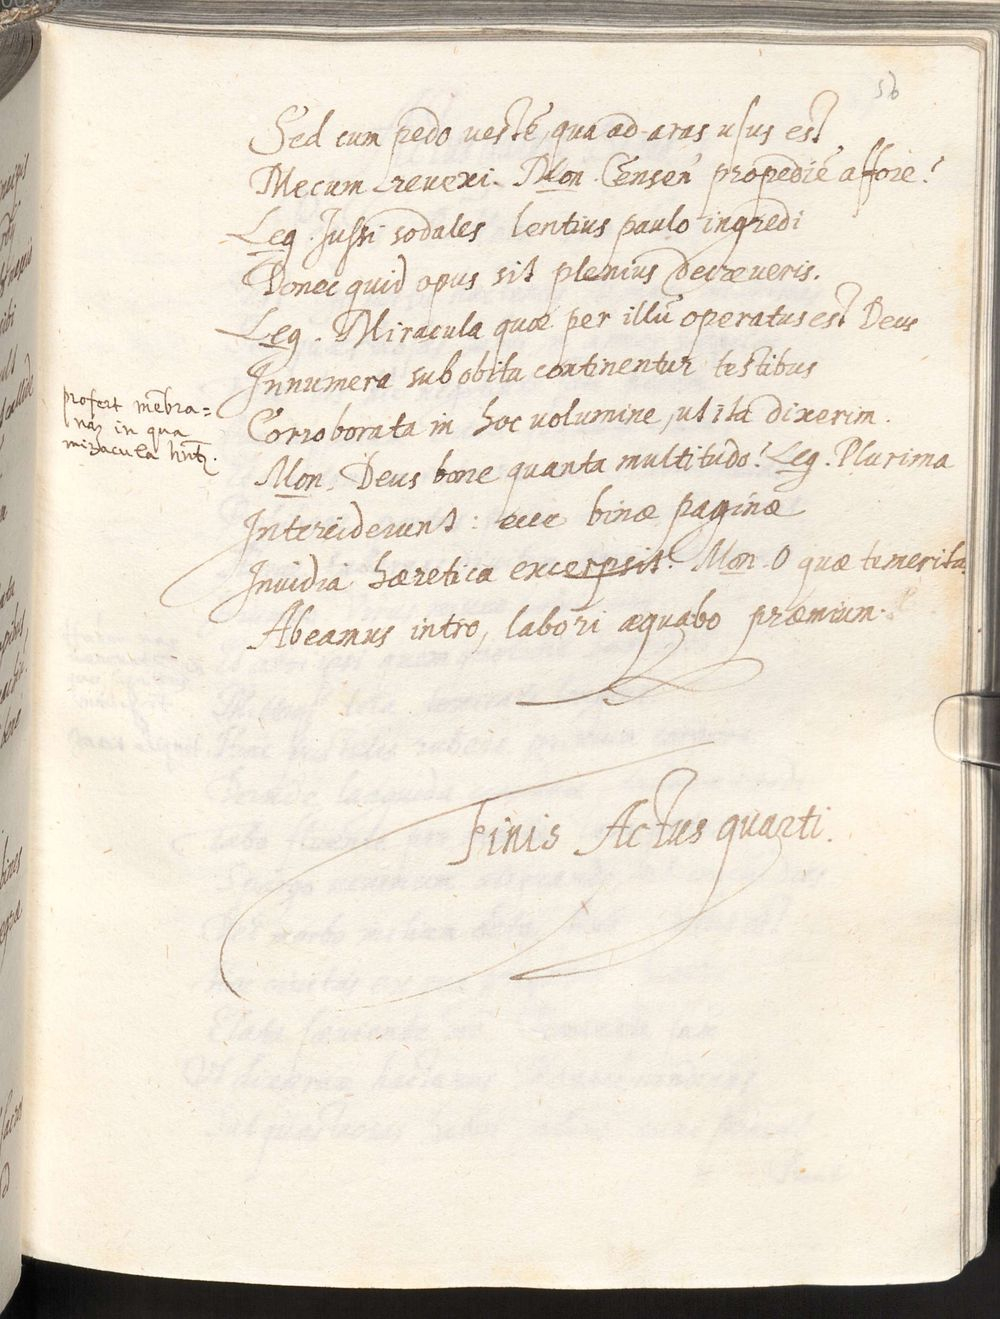 56
Sed cum pedo vestē, qua ad aras usus est
Mecum revexi. Mon. Censen̄ propediē affore?
Leg. Jussi sodales lentius paulo ingredi
Donec quid opus sit plenius decræveris.
Leg. Miracula quæ per illū operatus est Deus
Innumera sub obita continentur testibus
profert mēbra=
nas in qua
miracula
Corroborata in hoc volumine, ut ita dixerim.
Mon. Deus bone quanta multitudo! Leg. Plurima
Interciderunt: ecce binæ paginæ
Invidia hæretica excerpsit. Mon. O quæ temerita.
Abeamus intro, labori æquabo præmium.
Finis Actus quarti.